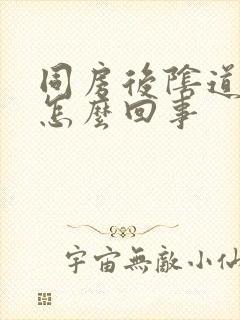 同房後陰道
怎麼回事
宇宙無敵小仙